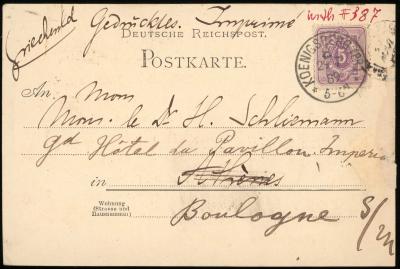 Griechenld
Gedrucktes. Imprimé
DEUTSCHE REICHSPOST.
POSTKARTE.
KOENIGSBERG
89
5-6
5
An Mons
Mons. le Dr H. Schliemann
gd Hôtel du Pavillon Imperia
in Athènes
Wohnung
(Strasse und
Hausnummer)
Boulogne s/m